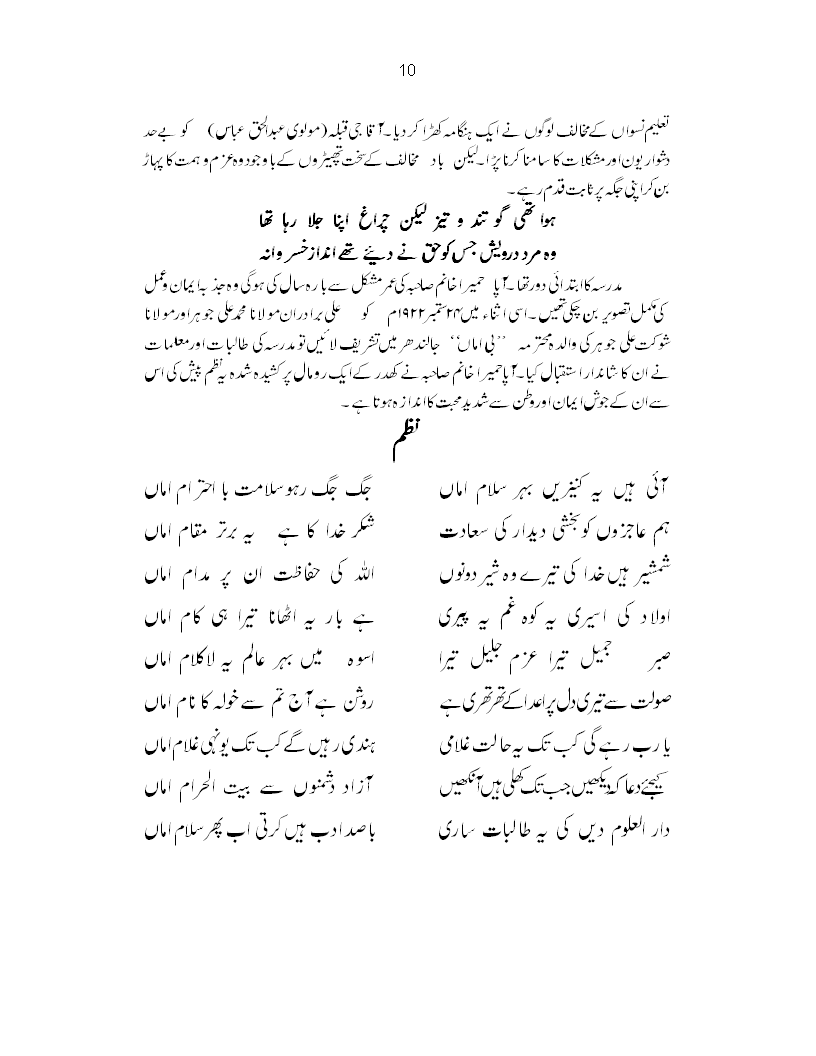 10
تعلیم نسواں کے مخالف لوگوں نے ایک ہنگامہ کھڑا کر دیا۔ آقا جی قبلہ (مولوی عبدالحق عباس) کو بے حد
دشواریوں اور مشکلات کا سامنا کرنا پڑا۔ لیکن باد مخالف کے سخت تھپیڑوں کے باوجود وہ عزم و ہمت کا پہاڑ
بن کر اپنی جگہ پر ثابت قدم رہے۔
ہوا تھی گو تند و تیز لیکن چراغ اپنا جلا رہا تھا
وہ مرد درویش جس کو حق نے دیئے تھے انداز خسروانہ
مدرسہ کا ابتدائی دور تھا۔ آپا حمیرا خانم صاحبہ کی عمر مشکل سے بارہ سال کی ہوگی وہ جذبہ ایمان و عمل
کی مکمل تصویر بن چکی تھیں۔ اسی اثناء میں ۲۴ ستمبر ۱۹۲۲م کو علی برادران مولانا محمد علی جوہر اور مولانا
شوکت علی جوہر کی والدہ محترمہ ’’بی اماں‘‘ جالندھر میں تشریف لائیں تو مدرسہ کی طالبات اور معلمات
نے ان کا شاندار استقبال کیا۔ آپا حمیرا خانم صاحبہ نے کھدر کے ایک رومال پر کشیدہ شدہ یہ نظم پیش کی اس
سے ان کے جوش ایمان اور وطن سے شدید محبت کا اندازہ ہوتا ہے۔
نظم
آئی ہیں یہ کنیزیں بہر سلام اماں جگ جگ رہو سلامت با احترام اماں
ہم عاجزوں کو بخشی دیدار کی سعادت شکر خدا کا ہے یہ برتر مقام اماں
شمشیر ہیں خدا کی تیرے وہ شیر دونوں اللہ کی حفاظت ان پر مدام اماں
اولاد کی اسیری یہ کوہ غم یہ پیری ہے بار یہ اٹھانا تیرا ہی کام اماں
صبر جمیل تیرا عزم جلیل تیرا اسوہ میں بہر عالم یہ لاکلام اماں
صولت سے تیری دل پر اعدا کے تھرتھری ہے روشن ہے آج تم سے خولہ کا نام اماں
یا رب رہے گی کب تک یہ حالت غلامی ہندی رہیں گے کب تک یونہی غلام اماں
کیجئے دعا کہ دیکھیں جب تک کھلی ہیں آنکھیں آزاد دشمنوں سے بیت الحرام اماں
دار العلوم دیں کی یہ طالبات ساری باصد ادب ہیں کرتی اب پھر سلام اماں